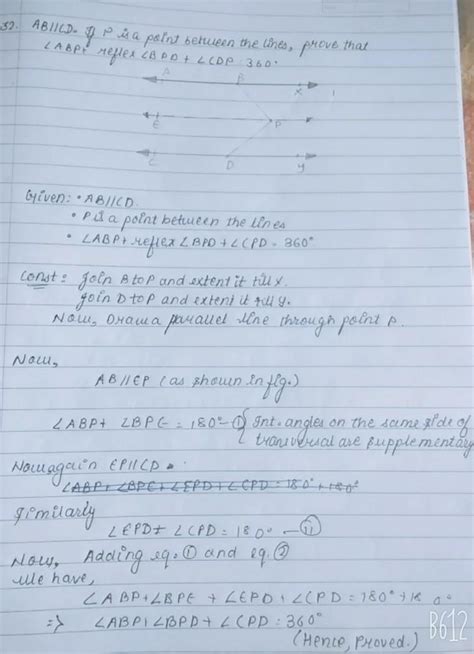 32. AB||CD. If P is a point between the lines, prove that
∠ABP + reflex ∠BPD + ∠CDP = 360°
A B X
E P
C D y
Given: • AB||CD.
• P is a point between the lines
• ∠ABP + reflex ∠BPD + ∠CPD = 360°
Const: Join B to P and extent it till X.
Join D to P and extent it till y.
Now, Draw a parallel line through point P.
Now,
AB//EP (as shown in fig.)
∠ABP + ∠BPE = 180° - ① { Int. angles on the same side of
transversal are supplementary
Now again EP||CD
∠ABP + ∠BPE + ∠EPD + ∠CPD = 180° + 180°
Similarly
∠EPD + ∠CPD = 180° - ⑪
Now, Adding eq. ① and eq. ②
We have,
∠ABP + ∠BPE + ∠EPD + ∠CPD = 180° + 18 0°
=> ∠ABP + ∠BPD + ∠CPD = 360°
(Hence, Proved.)
B612